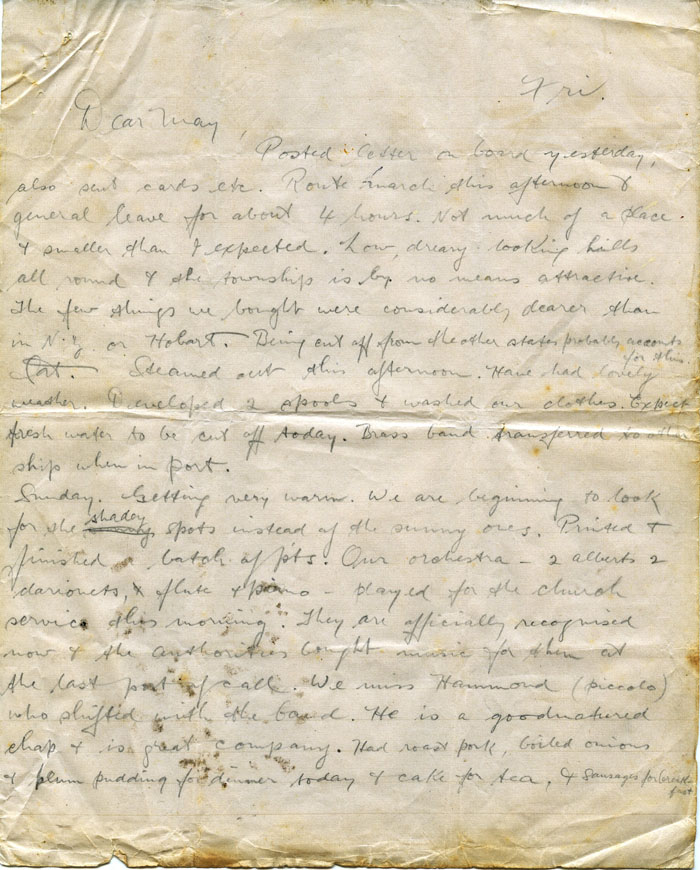 Fri.
Dear May,
Posted letter on board yesterday,
also sent cards etc. Route march this afternoon &
general leave for about 4 hours. Not much of a place
& smaller than I expected. Low, dreary looking hills
all round & the township is by no means attractive.
The few things we bought were considerably dearer than
in N.Z or Hobart. Being cut off from the other states probably accounts
for this
Steamed out this afternoon. Have had lovely
weather. Developed 2 spools & washed our clothes. Expect
fresh water to be cut off today. Brass band transferred to other
ship when in port.
Sunday. Getting very warm. We are beginning to look
for the shady spots instead of the sunny ones. Printed &
finished a batch of pts. Our orchestra – 2 alberts 2
clarionets, & flute & piano – played for the church
service this morning. They are officially recognised
now & the authorities bought music for them at
the last port of call. We miss Hammond (piccolo)
who shifted with the band. He is a goodnatured
chap & is great company. Had roast pork, boiled onions
& plum pudding for dinner today & cake for tea, & sausages for break-
fast